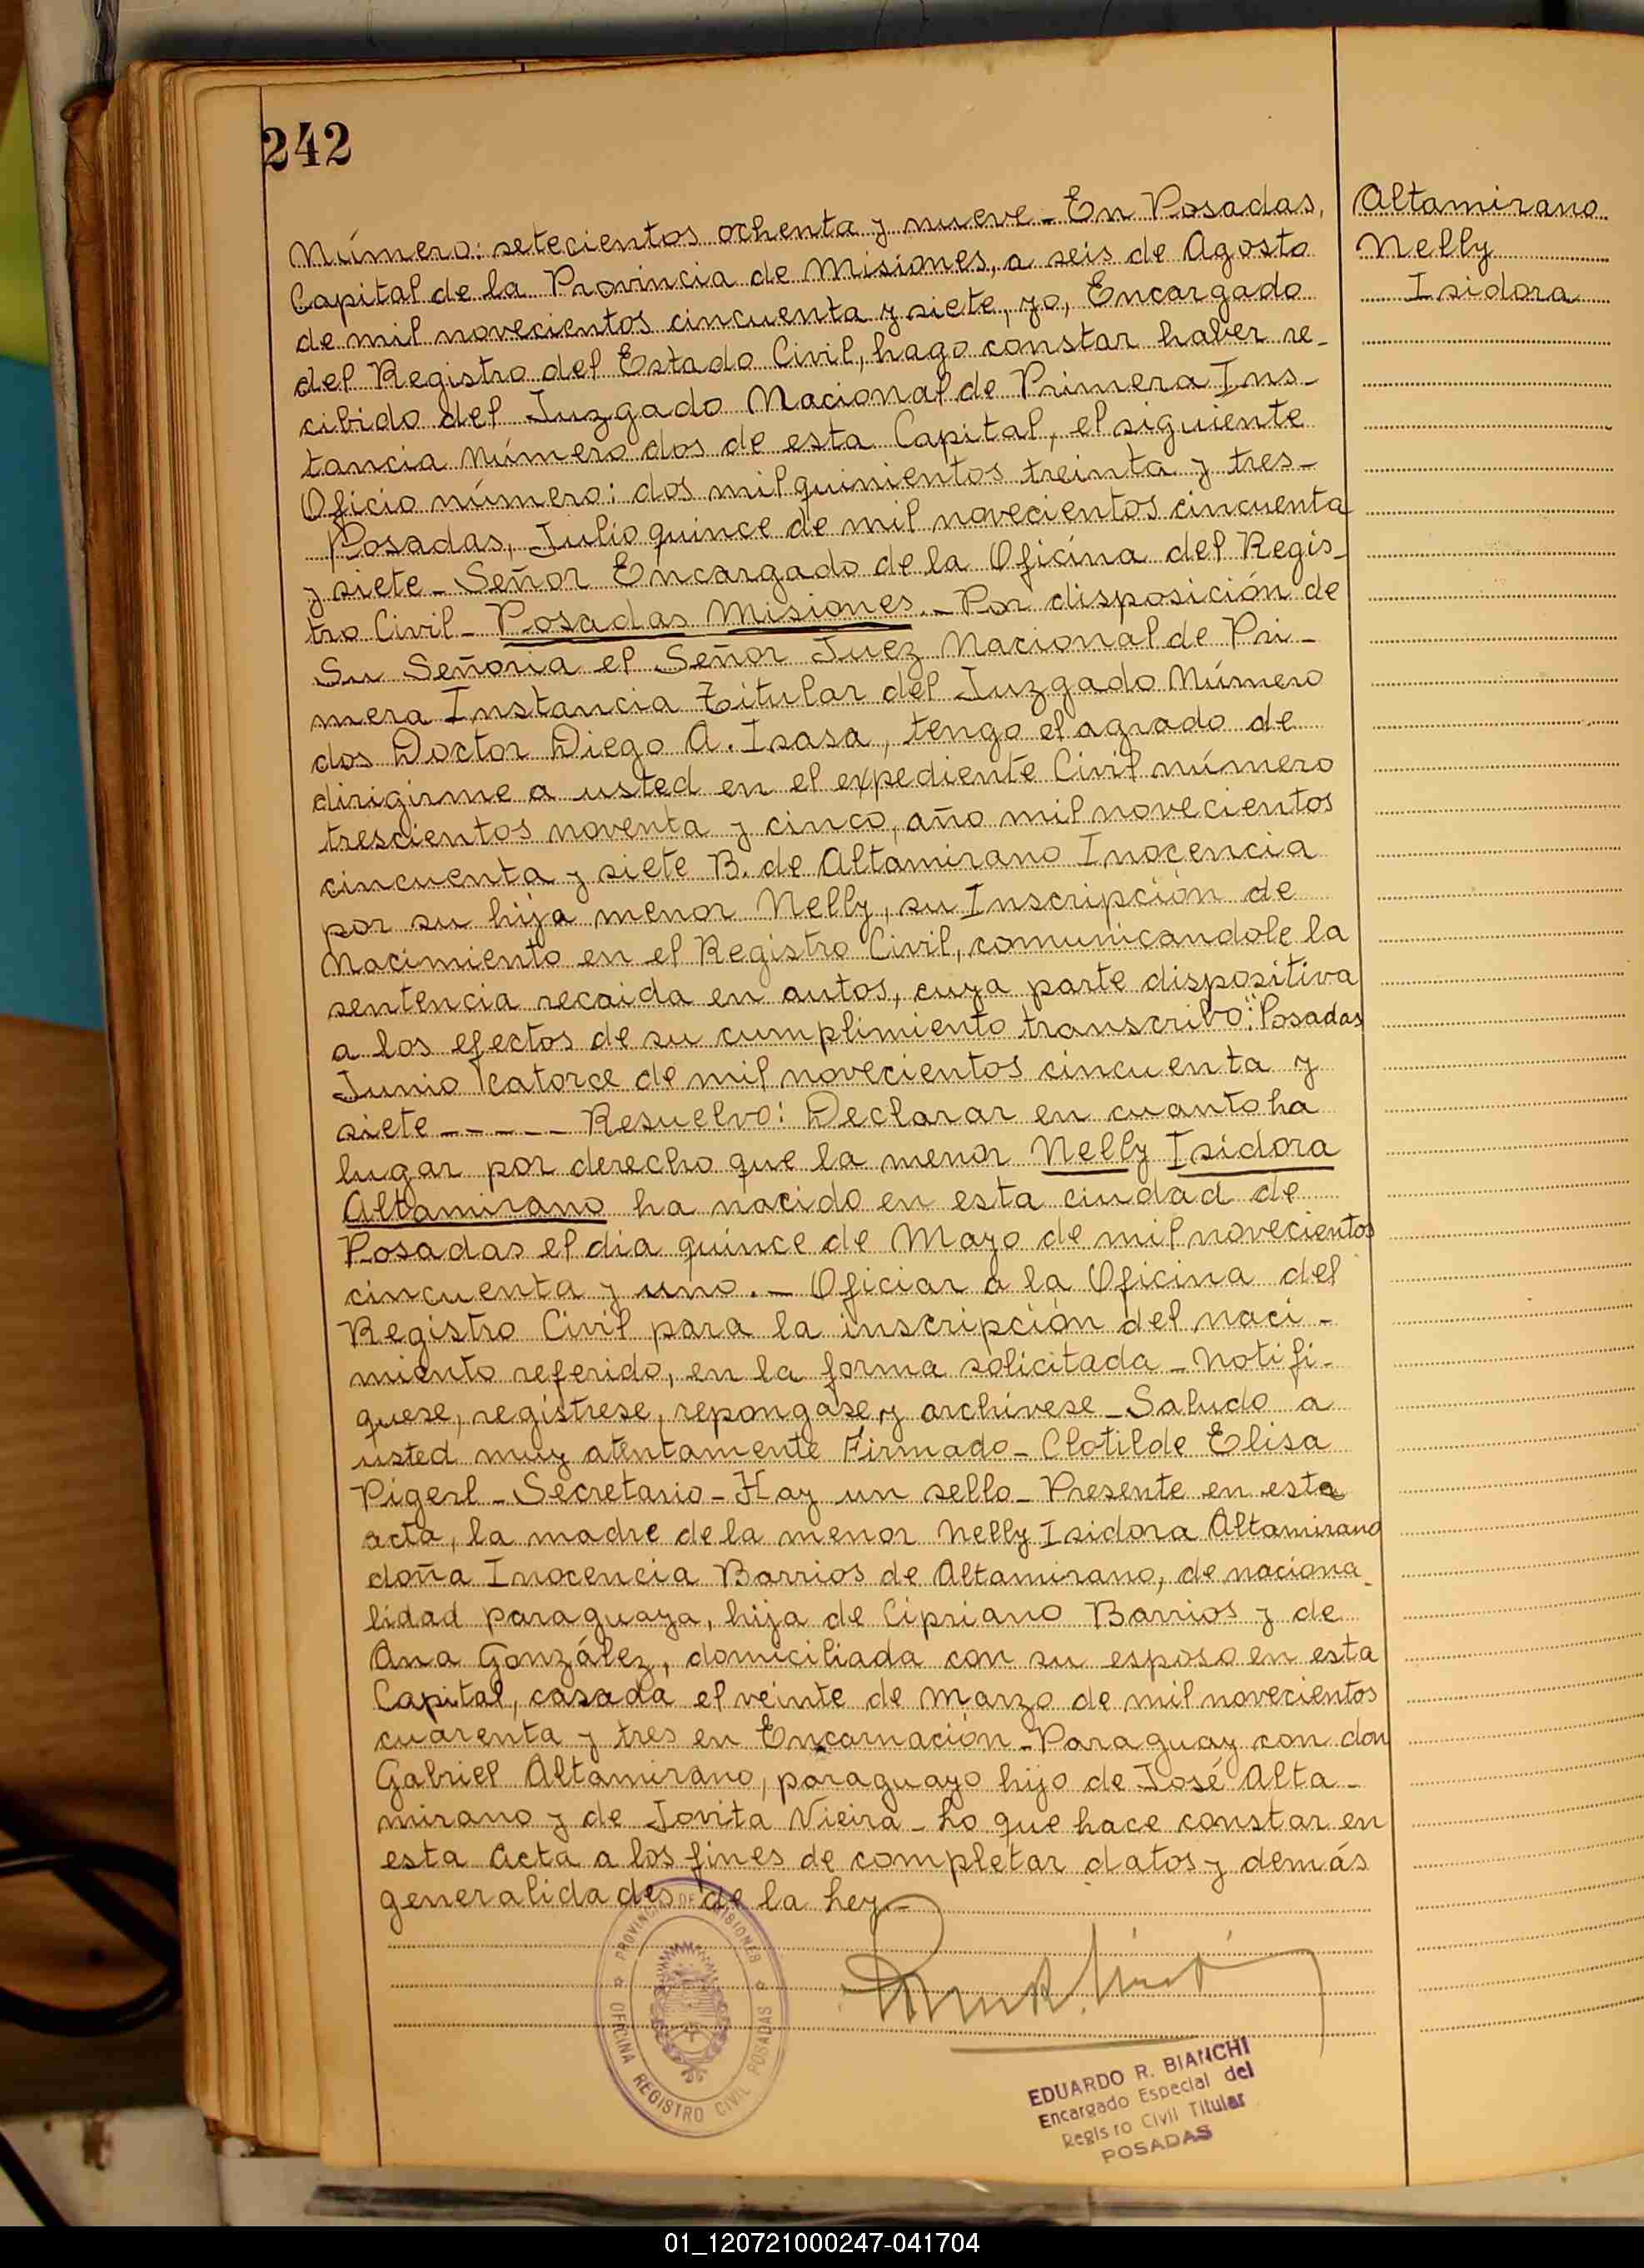 242
Altamirano
Nelly
Isidora
Número: setecientos ochenta y nueve - En Posadas,
Capital de la Provincia de Misiones, a seis de Agosto
de mil novecientos cincuenta y siete, yo, Encargado
del Registro del Estado Civil, hago constar haber re-
cibido del Juzgado Nacional de Primera Ins-
tancia Número dos de esta Capital, el siguiente
Oficio número: dos mil quinientos treinta y tres-
Posadas, Julio quince de mil novecientos cincuenta
y siete - Señor Encargado de la Oficina del Regis-
tro Civil - Posadas Misiones. - Por disposición de
Su Señoria el Señor Juez Nacional de Pri-
mera Instancia Titular del Juzgado Número
dos Doctor Diego A. Isasa, tengo el agrado de
dirigirme a usted en el expediente Civil número
trescientos noventa y cinco, año mil novecientos
cincuenta y siete B. de Altamirano Inocencia
por su hija menor Nelly, su Inscripción de
Nacimiento en el Registro Civil, comunicandole la
sentencia recaida en autos, cuya parte dispositiva
a los efectos de su cumplimiento transcribo: "Posadas
Junio catorce de mil novecientos cincuenta y
siete - - - - - Resuelvo: Declarar en cuanto ha
lugar por derecho que la menor Nelly Isidora
Altamirano ha nacido en esta ciudad de
Posadas el dia quince de Mayo de mil novecientos
cincuenta y uno. - Oficiar a la Oficina del
Registro Civil para la inscripción del naci-
miento referido, en la forma solicitada - Notifi-
quese, registrese, repongase y archivese - Saludo a
usted muy atentamente Firmado - Clotilde Elisa
Pigerl - Secretario - Hay un sello - Presente en esta
acta, la madre de la menor Nelly Isidora Altamirano
doña Inocencia Barrios de Altamirano, de naciona-
lidad paraguaya, hija de Cipriano Barrios y de
Ana González, domiciliada con su esposo en esta
Capital, casada el veinte de Marzo de mil novecientos
cuarenta y tres en Encarnación - Paraguay con don
Gabriel Altamirano, paraguayo hijo de José Alta-
mirano y de Jovita Vieira - Lo que hace constar en
esta Acta a los fines de completar datos y demás
generalidades de la Ley -
PROVINCIA DE MISIONES
OFICINA REGISTRO CIVIL POSADAS
EDUARDO R. BIANCHI
Encargado Especial del
Regis ro Civil Titular
POSADAS
01_120721000247-041704